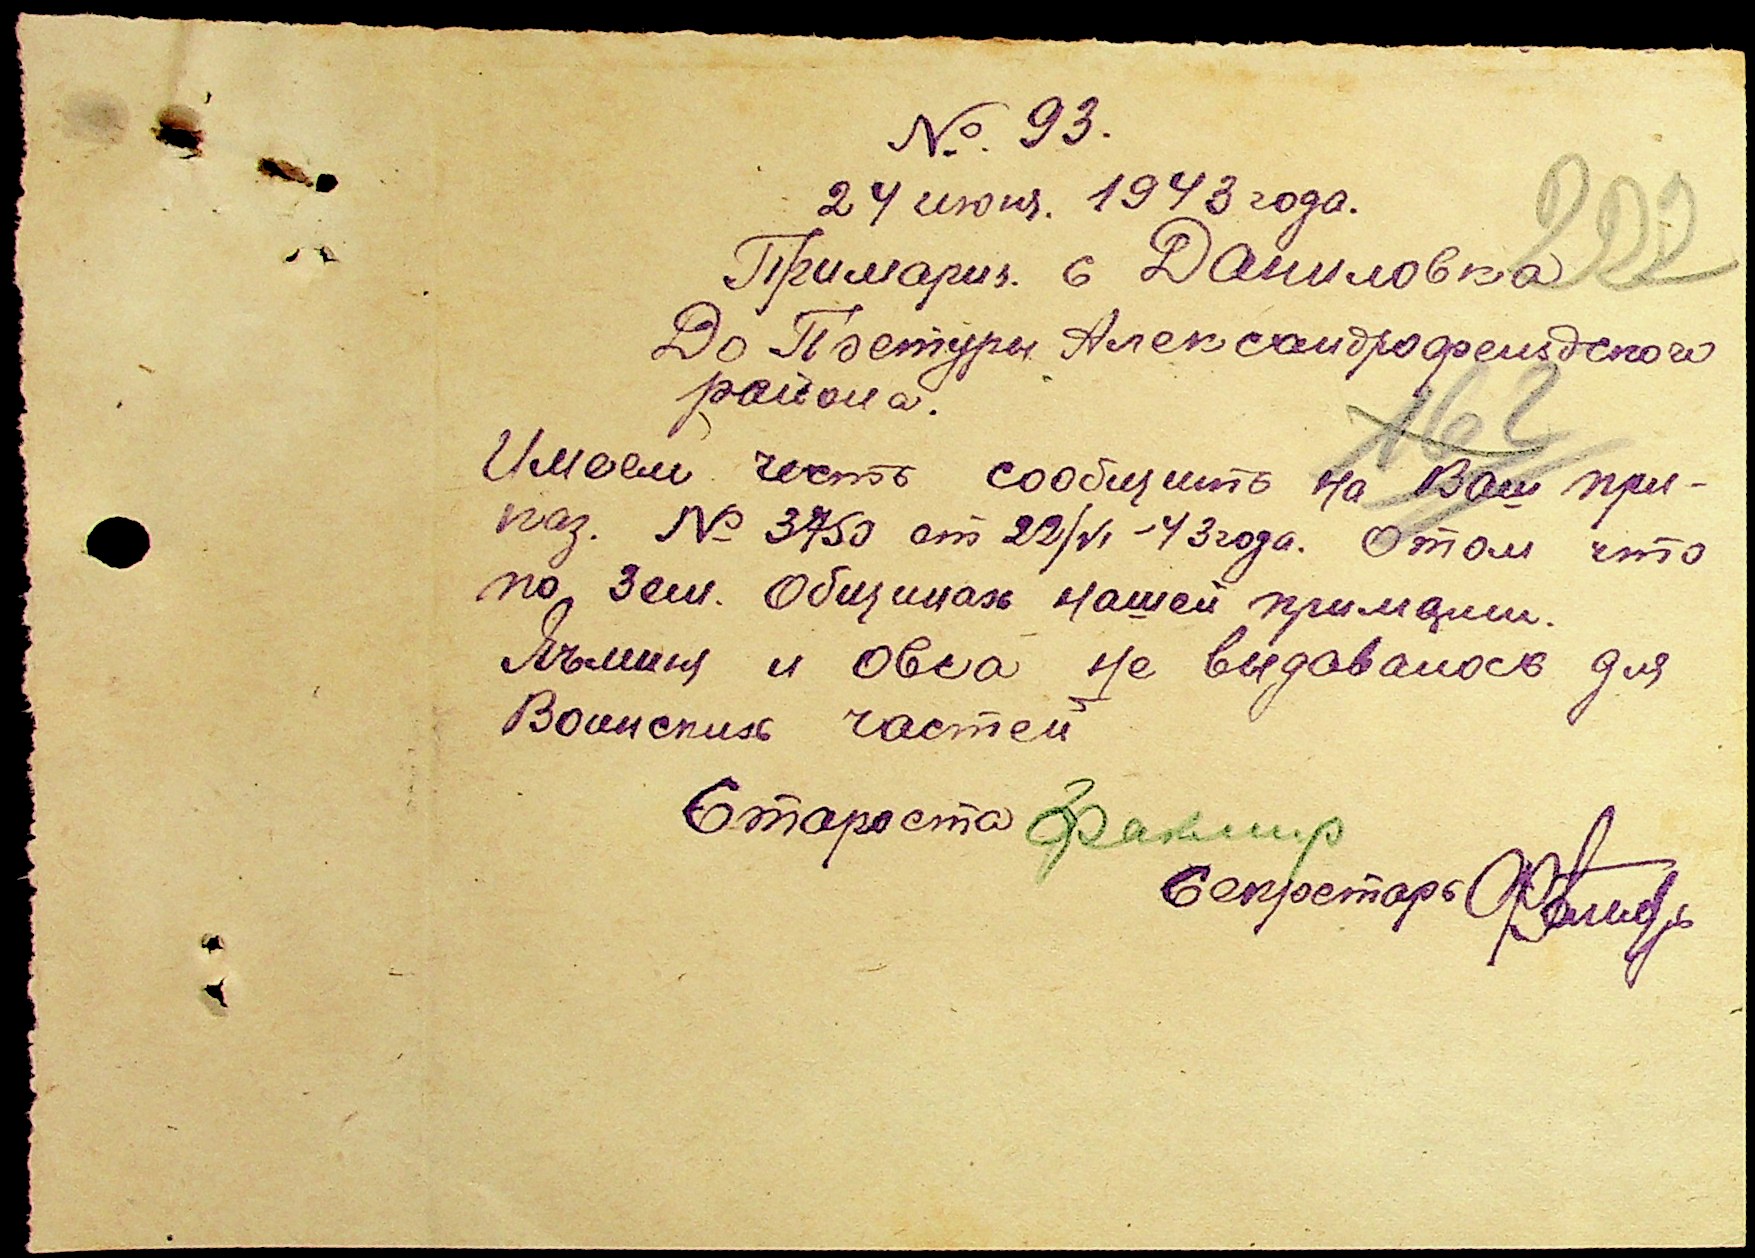 №. 93.
24 июня. 1943 года.
222
Примария. с Даниловка
До Претуры Александрофельдского
района.
Имеем честь сообщить на Ваш при-
каз. № 3750 от 22/VI -43 года. Отом что
по Зем. Общинах нашей примарии.
Ячменя и овса не выдавалось для
Воинских частей
Староста
Секретарь